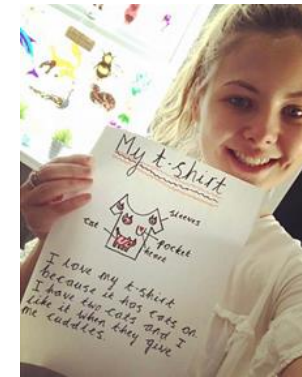 My t-shirt
sleeves
cat
pocket
heart
I love my t-shirt
because it has cats on
I have two cats and I
like it when they give
me cuddles.